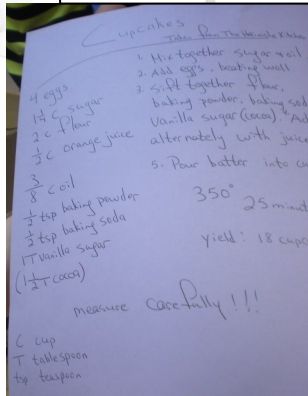 Cupcakes
Taken from The Heirloom Kitchen
4 eggs
1 1/4 c sugar
2 c flour
1/2 c orange juice
3/8 c oil
1/2 tsp baking powder
1/2 tsp baking soda
1 T vanilla sugar
(1 1/2 T cocoa)
1. Mix together sugar + oil
2. Add eggs, beating well
3. Sift together flour,
baking powder, baking sod
vanilla sugar (cocoa). Add
alternately with juice
5. Pour batter into cu
350° 25 minut
yield: 18 cupc
measure carefully!!!
C cup
T tablespoon
tsp teaspoon